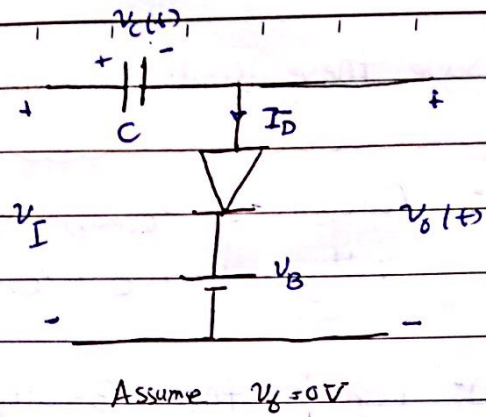 v_c(t)
+ -
+ C I_D +
v_I v_o(t)
V_B
- -
Assume V_f = 0V